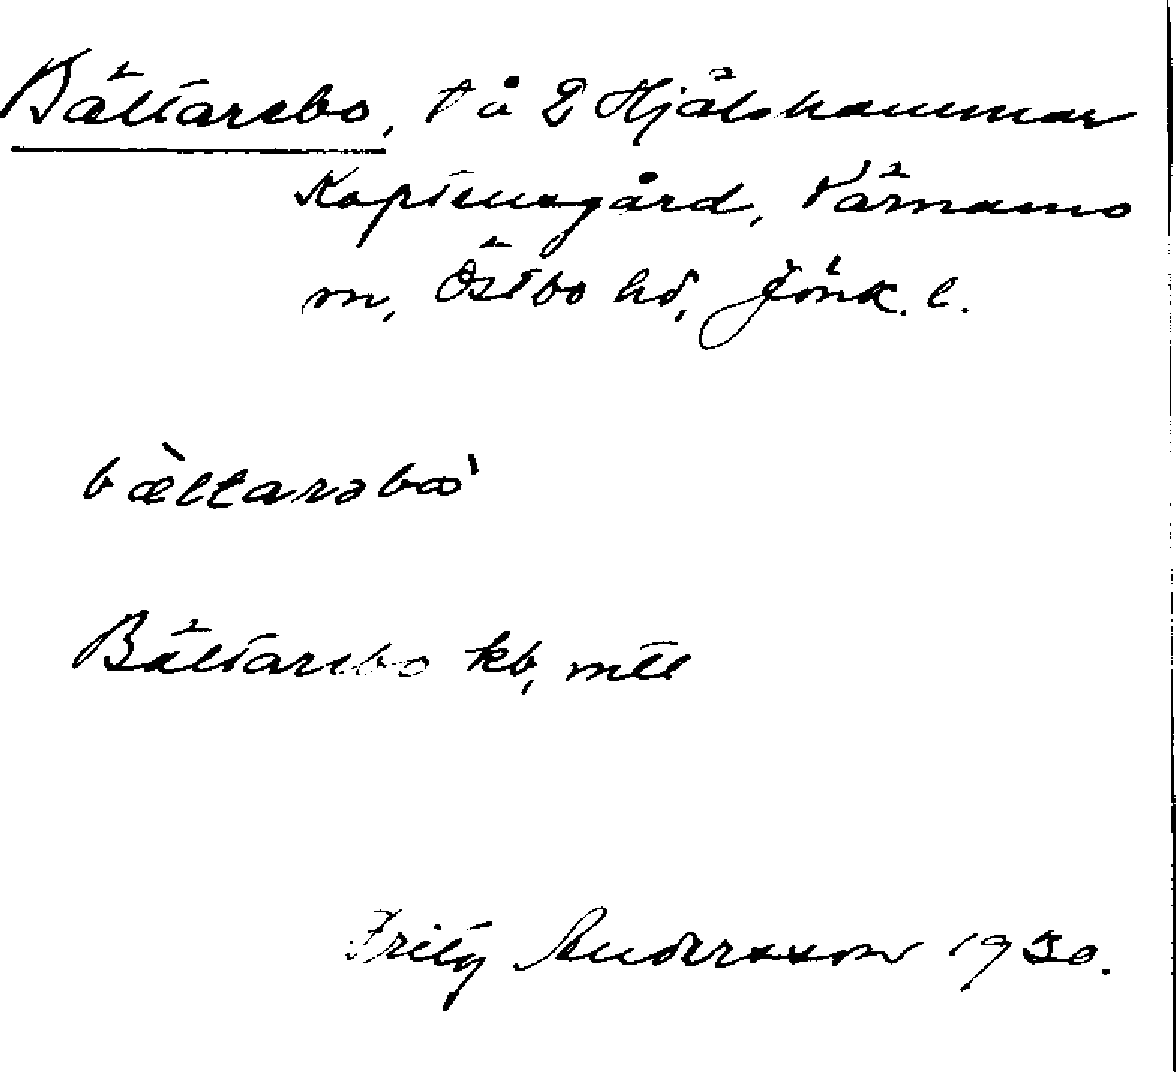 Bältarebo, t å 2 Hjälshammar
Kaptensgård, Värnamo
m, Östbo hd, Jönk. l.
bæ̀ltarəbω'
Bältarebo kb, mtl
Frity Andersson 1930.